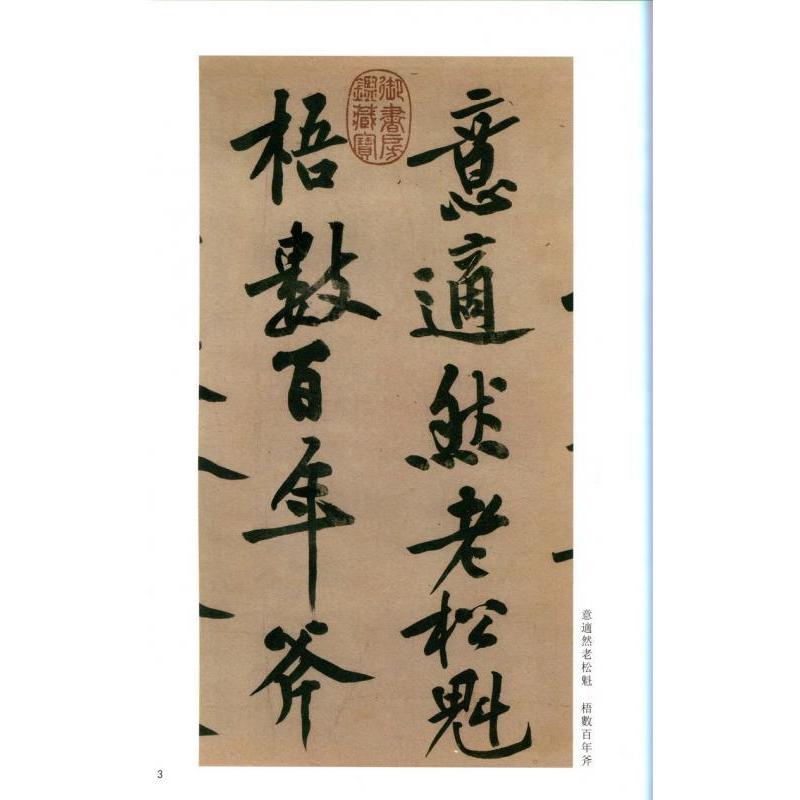 意適然老松魁
梧數百年斧
御書房
鑑藏寶
意適然老松魁　梧數百年斧
3